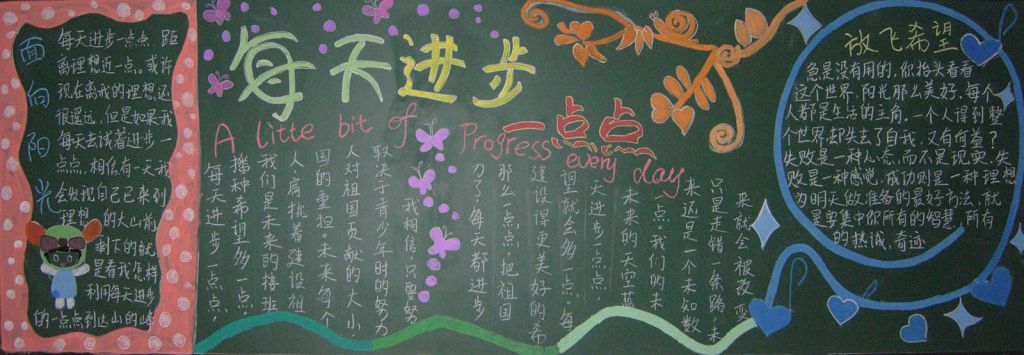 面向阳光
每天进步一点点,距
离理想近一点,或许
现在离我的理想还
很遥远,但是如果我
每天去试着进步一
点点,相信有一天我
会发现自己已来到
理想的大山前,
剩下的就
是看我怎样
利用每天进步
的一点点到达山的峰
每天进步
一点点
A litte bit of Progress every day
每天进步一点点,
播种希望多一点,
我们是未来的接班
人,肩挑着建设祖
国的重担,未来每个
人对祖国贡献的大小
取决于青少年时的努力
我相信,只要努
力了,每天都进步
那么一点点,把祖国
建设得更美好的希
望就会多一点。每
天进步一点点,
未来的天空蓝
一点。我们的未
来还是一个未知数
只是走错一条路,未
来就会被改变
放飞希望
急是没有用的,你抬头看看
这个世界,阳光那么美好,每个
人都是生活的主角,一个人得到整
个世界却失去了自我,又有何益?
失败是一种心态,而不是现实,失
败是一种感觉,成功则是一种理想
为明天做准备的最好方法,就
是要集中你所有的智慧,所有
的热诚,奇迹